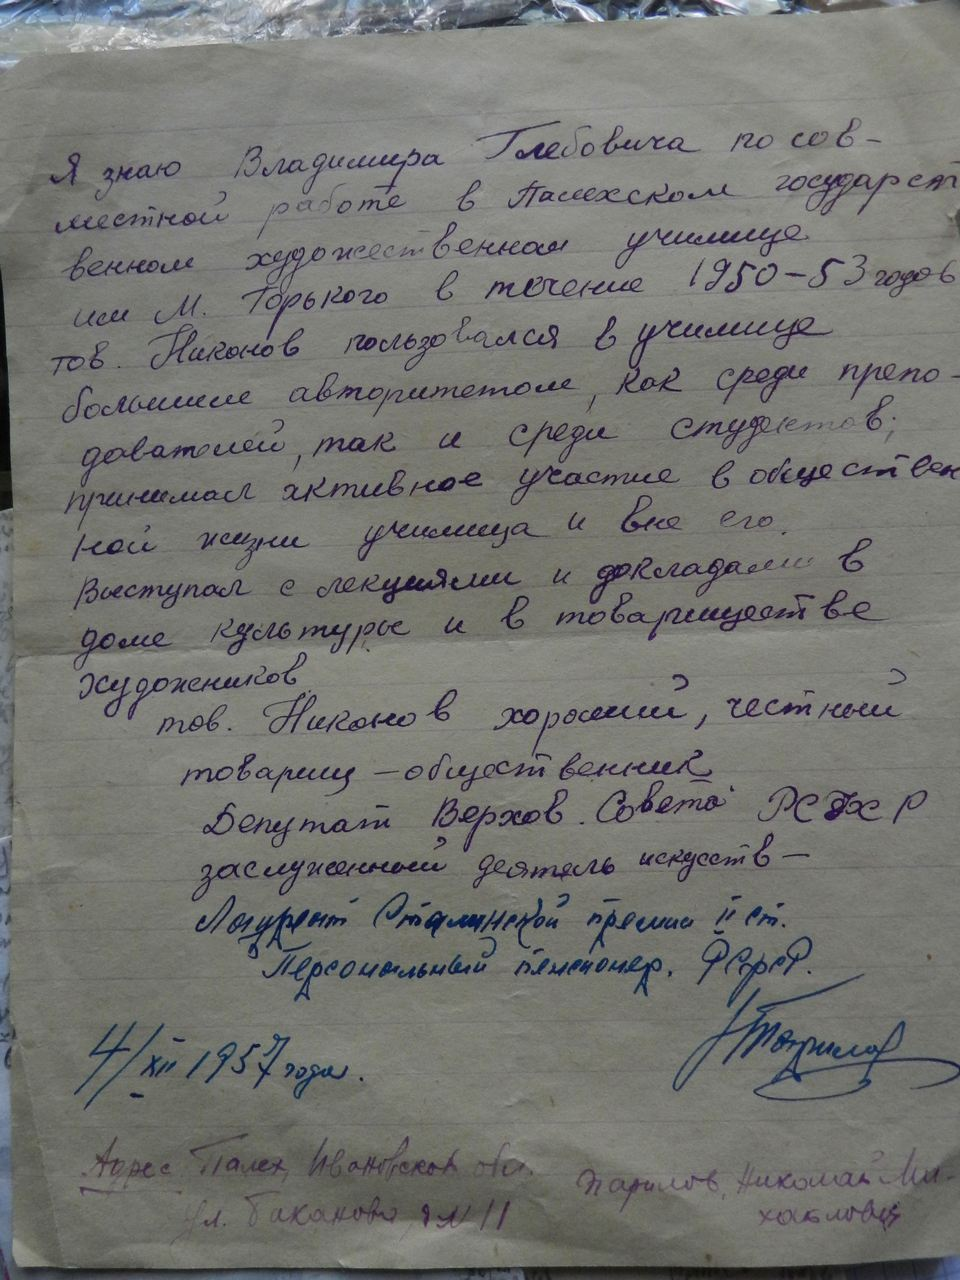 Я знаю Владимира Глебовича по сов-
местной работе в Палехском государст
венном художественном училище
им М. Горького в течение 1950-53 годов
тов. Никонов пользовался в училище
большим авторитетом, как среди препо-
давателей, так и среди студентов;
принимал активное участие в обществен
ной жизни училища и вне его.
Выступал с лекциями и докладами в
доме культуры и в товариществе
художников
тов. Никонов хороший, честный
товарищ - общественник
Депутат Верхов. Совета РСФСР
заслуженный деятель искусств -
Лауреат Сталинской премии II ст.
Персональный пенсионер. РСФСР.
Н Парилов
4/XII 1957 года.
Адрес Палех, Ивановской обл.
ул. Баканова, д N 11
Парилов, Николай Ми-
хайлович